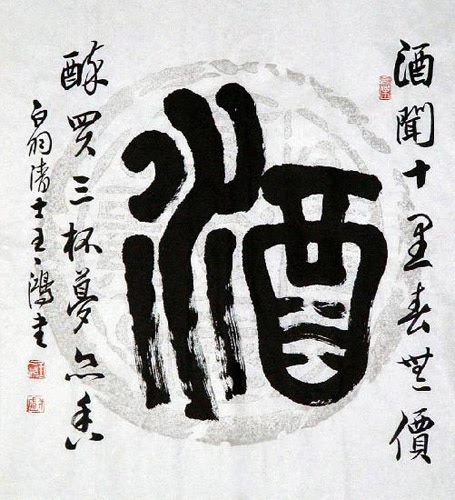 酒聞十里春無價
酒
醉買三杯夢亦香
白羽清士王鴻書